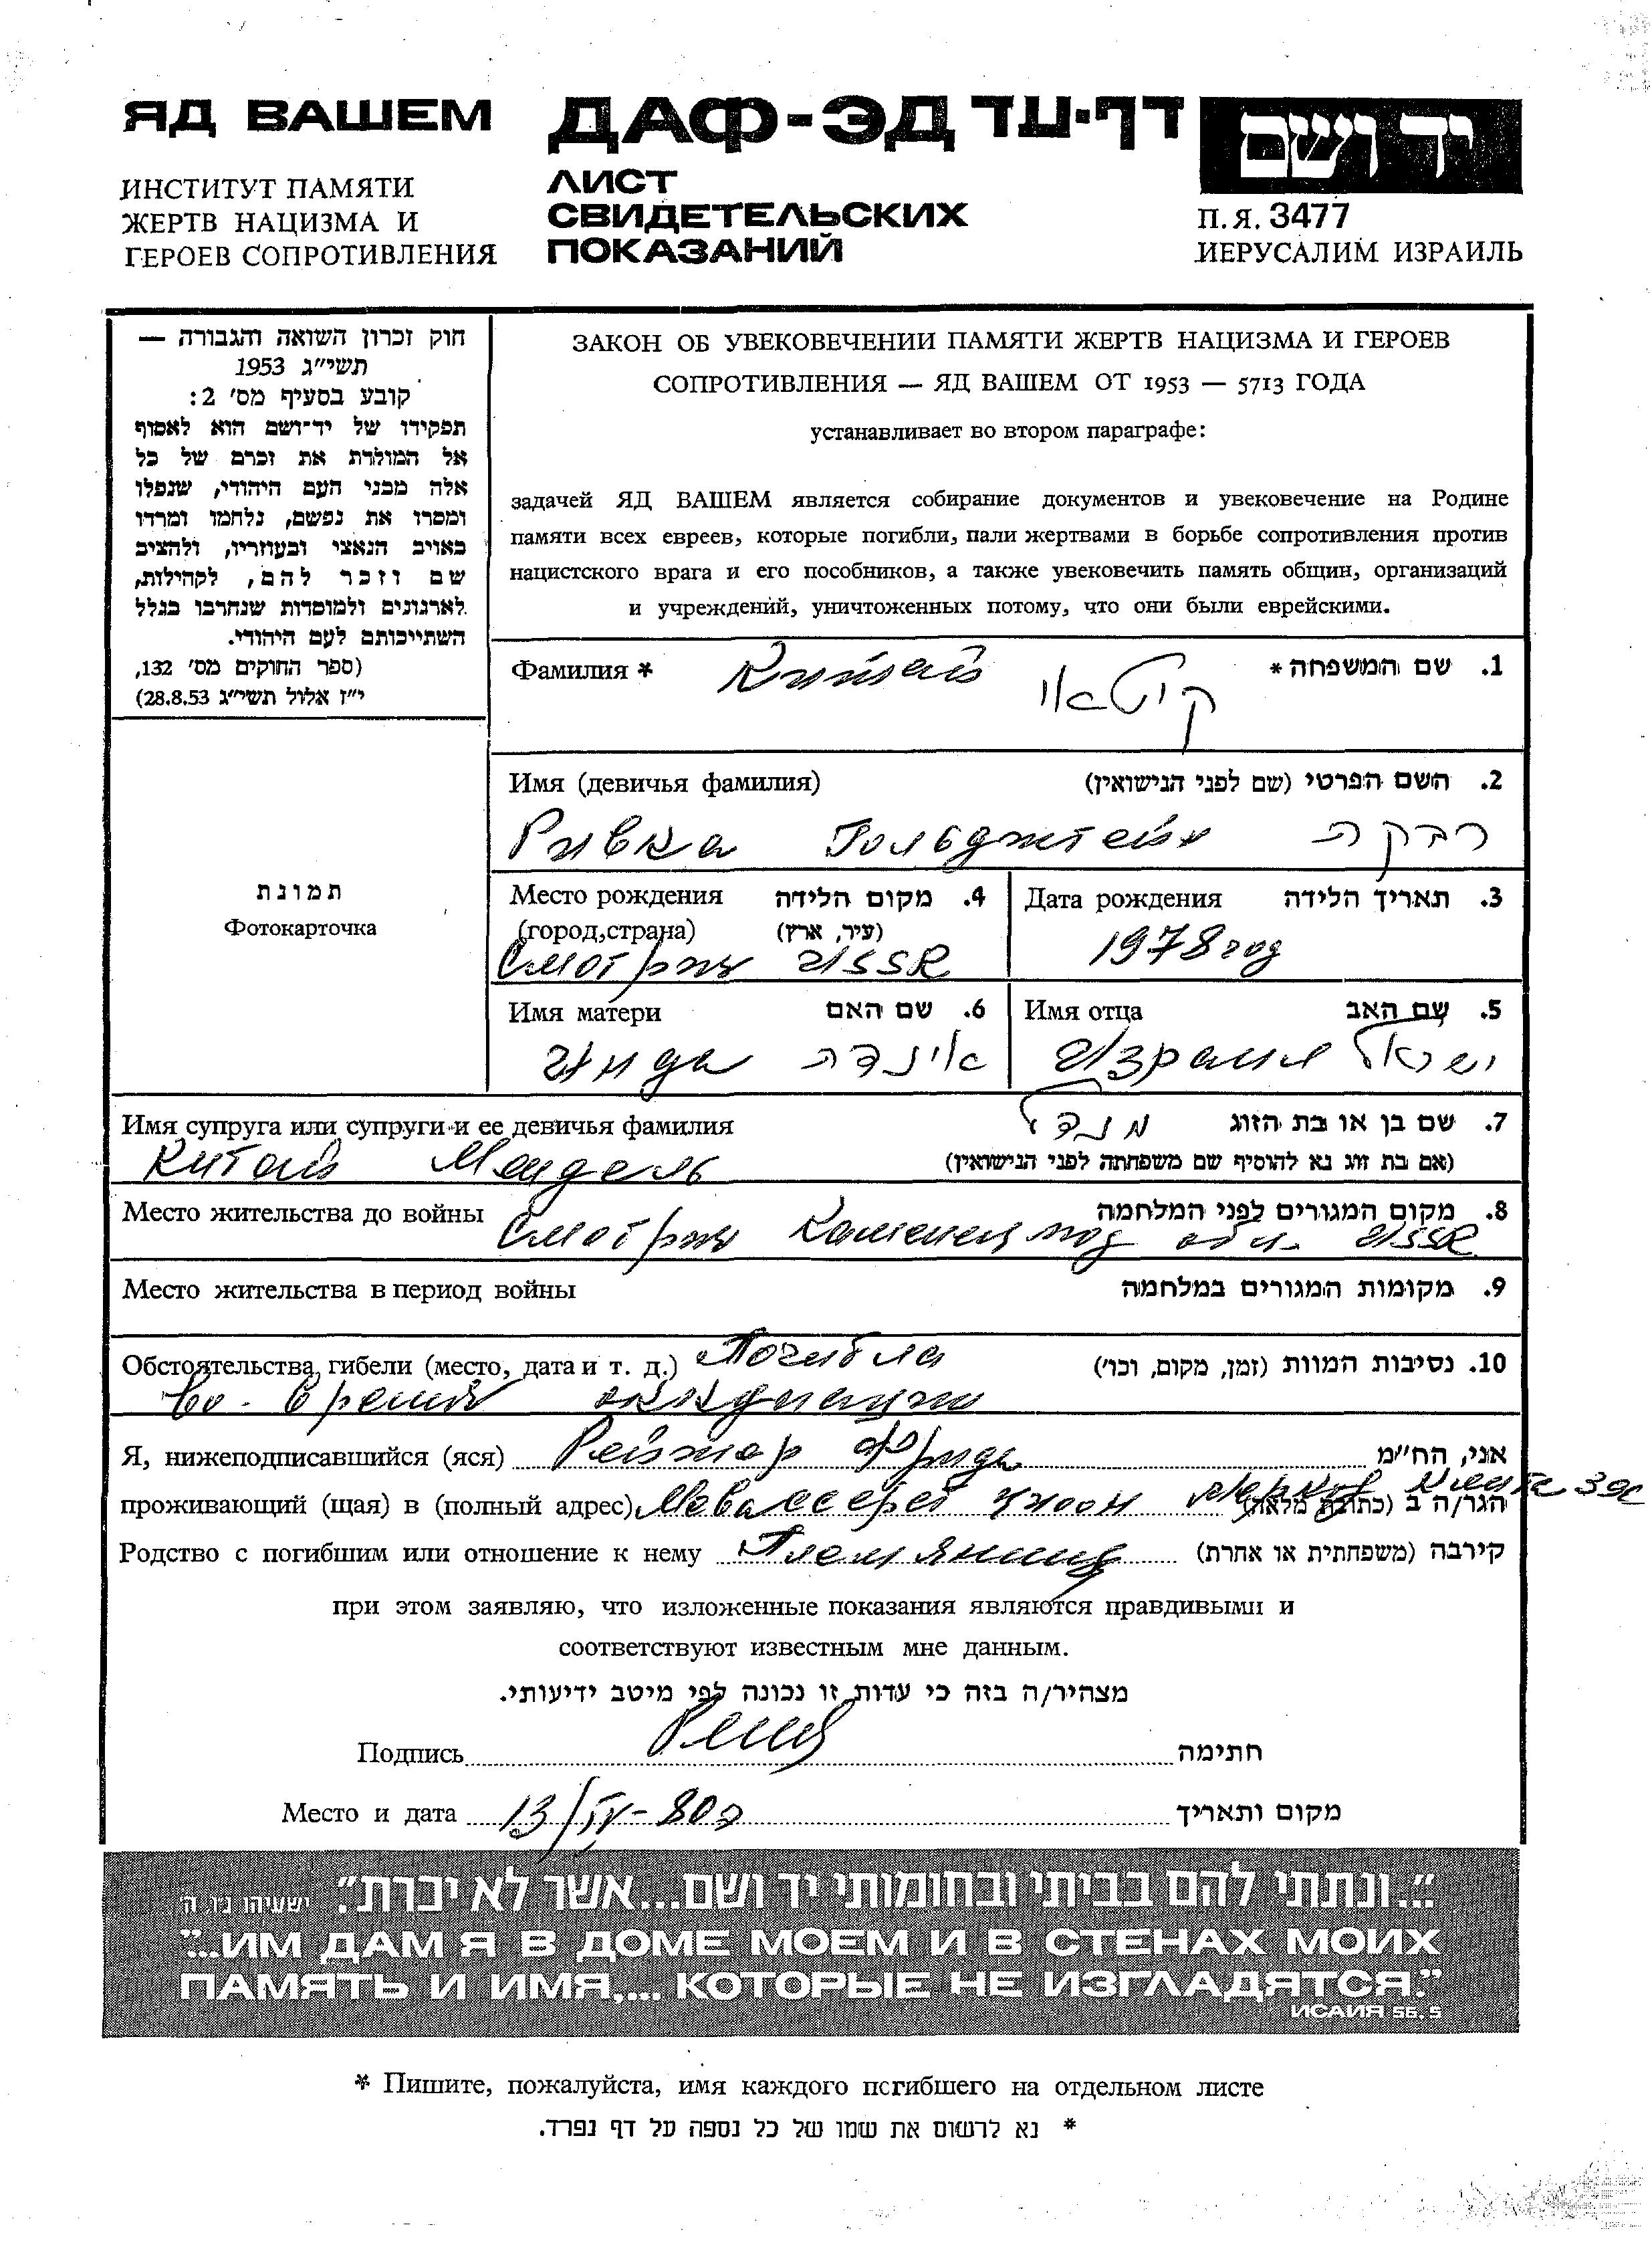 ЯД ВАШЕМ
ИНСТИТУТ ПАМЯТИ
ЖЕРТВ НАЦИЗМА И
ГЕРОЕВ СОПРОТИВЛЕНИЯ
ДАФ-ЭД דף-עד
ЛИСТ
СВИДЕТЕЛЬСКИХ
ПОКАЗАНИЙ
יד ושם
П.Я. 3477
ИЕРУСАЛИМ ИЗРАИЛЬ
חוק זכרון השואה והגבורה —
תשי״ג 1953
קובע בסעיף מס׳ 2:
תפקידו של יד־ושם הוא לאסוף
אל המולדת את זכרם של כל
אלה מבני העם היהודי, שנפלו
ומסרו את נפשם, נלחמו ומרדו
באויב הנאצי ובעוזריו, ולהציב
שם וזכר להם, לקהילות,
לארגונים ולמוסדות שנחרבו בגלל
השתייכותם לעם היהודי.
(ספר החוקים מס׳ 132,
י״ז אלול תשי״ג 28.8.53)
ЗАКОН ОБ УВЕКОВЕЧЕНИИ ПАМЯТИ ЖЕРТВ НАЦИЗМА И ГЕРОЕВ
СОПРОТИВЛЕНИЯ — ЯД ВАШЕМ ОТ 1953 — 5713 ГОДА
устанавливает во втором параграфе:
задачей ЯД ВАШЕМ является собирание документов и увековечение на Родине
памяти всех евреев, которые погибли, пали жертвами в борьбе сопротивления против
нацистского врага и его пособников, а также увековечить память общин, организаций
и учреждений, уничтоженных потому, что они были еврейскими.
Фамилия * Китай קיטאי 1. שם המשפחה *
Имя (девичья фамилия) 2. השם הפרטי (שם לפני הנישואין)
Ривка Гольдштейн רבקה
Место рождения 4. מקום הלידה
(город,страна) (עיר, ארץ)
Смотрич USSR
Дата рождения 3. תאריך הלידה
1978 год
Имя матери 6. שם האם
Инда אינדה
Имя отца 5. שם האב
Израиль ישראל
תמונת
Фотокарточка
Имя супруга или супруги и ее девичья фамилия מנדל 7. שם בן או בת הזוג
Китай Мендель (אם בת זוג נא להוסיף שם משפחתה לפני הנישואין)
Место жительства до войны 8. מקום המגורים לפני המלחמה
Смотрич Каменец под обл. USSR
Место жительства в период войны 9. מקומות המגורים במלחמה
Обстоятельства гибели (место, дата и т. д.) Погибла 10. נסיבות המוות (זמן, מקום, וכו׳)
во время оккупации
Я, нижеподписавшийся (яся) Фрида אני, הח״מ
проживающий (щая) в (полный адрес) Мевассерет Цион הגר/ה ב (כתובת מלאה)
Родство с погибшим или отношение к нему Племянница קירבה (משפחתית או אחרת)
при этом заявляю, что изложенные показания являются правдивыми и
соответствуют известным мне данным.
מצהיר/ה בזה כי עדות זו נכונה לפי מיטב ידיעותי.
Подпись חתימה
Место и дата 13/IV-80 מקום ותאריך
״...ונתתי להם בביתי ובחומותי יד ושם...אשר לא יכרת״. ישעיהו נ״ו, ה׳
"...ИМ ДАМ Я В ДОМЕ МОЕМ И В СТЕНАХ МОИХ
ПАМЯТЬ И ИМЯ,... КОТОРЫЕ НЕ ИЗГЛАДЯТСЯ."
ИСАИЯ 56. 5
* Пишите, пожалуйста, имя каждого погибшего на отдельном листе
* נא לרשום את שמו של כל נספה על דף נפרד.